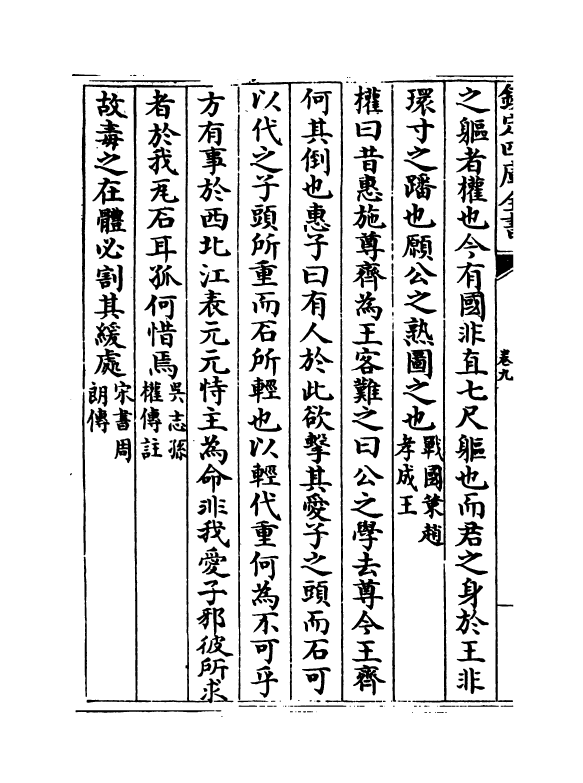 欽定四庫全書
卷九
之軀者權也今有國非直七尺軀也而君之身於王非
環寸之蹯也願公之熟圖之也戰國策趙
孝成王
權曰昔惠施尊齊為王客難之曰公之學去尊今王齊
何其倒也惠子曰有人於此欲擊其愛子之頭而石可
以代之子頭所重而石所輕也以輕代重何為不可乎
方有事於西北江表元元恃主為命非我愛子邪彼所求
者於我瓦石耳孤何惜焉吳志孫
權傳註
故毒之在體必割其緩處宋書周
朗傳